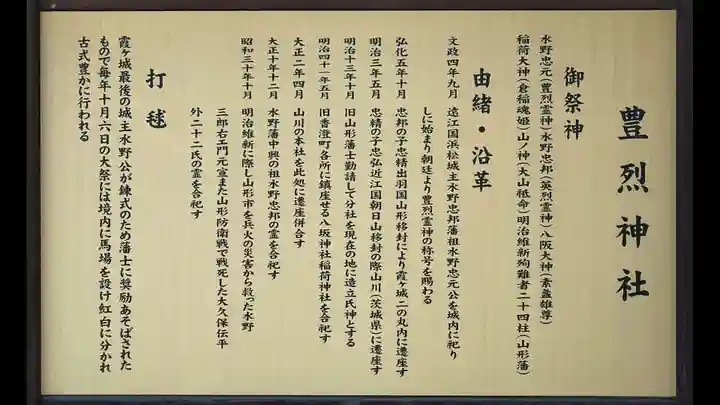 豊烈神社
御祭神
水野忠元(豊烈霊神)水野忠邦(英烈霊神)八阪大神(素盞雄尊)
稲荷大神(倉稲魂姫)山ノ神(大山祗命)明治維新殉難者二十四柱(山形藩)
由緒・沿革
文政四年九月 遠江国浜松城主水野忠邦藩祖水野忠元公を城内に祀り
しに始まり朝廷より豊烈霊神の称号を賜わる
弘化五年十月 忠邦の子忠精出羽国山形移封により霞ヶ城二の丸内に遷座す
明治三年五月 忠精の子忠弘近江国朝日山移封の際山川(茨城県)に遷座す
明治十三年十月 旧山形藩士勤請して分社を現在の地に造立氏神とする
明治四十一年五月 旧香澄町各所に鎮座せる八坂神社稲荷神社を合祀す
大正二年四月 山川の本社を此処に遷座併合す
大正十年十二月 水野藩中興の祖水野忠邦の霊を合祀す
昭和三十年十月 明治維新に際し山形市を兵火の災害から救った水野
三郎右エ門元宣また山形防衛戦で戦死した大久保伝平
外二十二氏の霊を合祀す
打毬
霞ヶ城最後の城主水野公が錬武のため藩士に奨励あそばされた
もので毎年十月六日の大祭には境内に馬場を設け紅白に分かれ
古式豊かに行われる